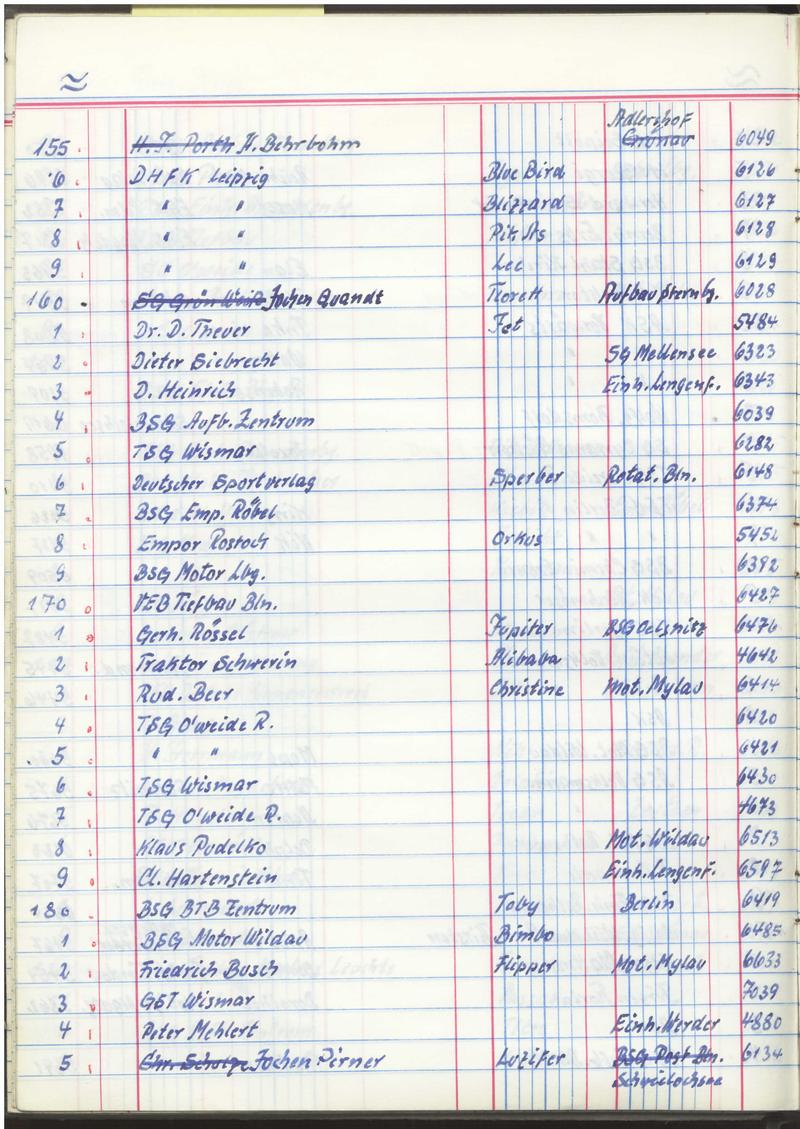 ≈
Adlershof
155 H. J. Porth H. Behrbohm Grünau 6049
6 DHFK Leipzig Blue Bird 6126
7 " " Blizzard 6127
8 " " Pik As 6128
9 " " Lee 6129
160 SG Grün Weiß Jochen Quandt Florett Aufbau Sternbg. 6028
1 Dr. D. Theuer Jet 5484
2 Dieter Siebrecht SG Mellensee 6323
3 D. Heinrich Einh. Lengenf. 6343
4 BSG Aufb. Zentrum 6039
5 TSG Wismar 6282
6 Deutscher Sportverlag Sperber Rotat. Bln. 6148
7 BSG Emp. Röbel 6374
8 Empor Rostock Orkus 5452
9 BSG Motor Lbg. 6392
170 VEB Tiefbau Bln. 6427
1 Gerh. Rössel Jupiter BSG Oelsnitz 6476
2 Traktor Schwerin Alibaba 4642
3 Rud. Beer Christine Mot. Mylau 6414
4 TSG O'weide R. 6420
5 " " 6421
6 TSG Wismar 6430
7 TSG O'weide R. 4673
8 Klaus Pudelko Mot. Wildau 6513
9 Cl. Hartenstein Einh. Lengenf. 6597
180 BSG BTB Zentrum Toby Berlin 6419
1 BSG Motor Wildau Bimbo 6485
2 Friedrich Busch Flipper Mot. Mylau 6633
3 GST Wismar 7039
4 Peter Mehlert Einh. Werder 4880
5 Chr. Scholze Jochen Pirner Luzifer BSG Post Bln. 6134
Schwielochsee